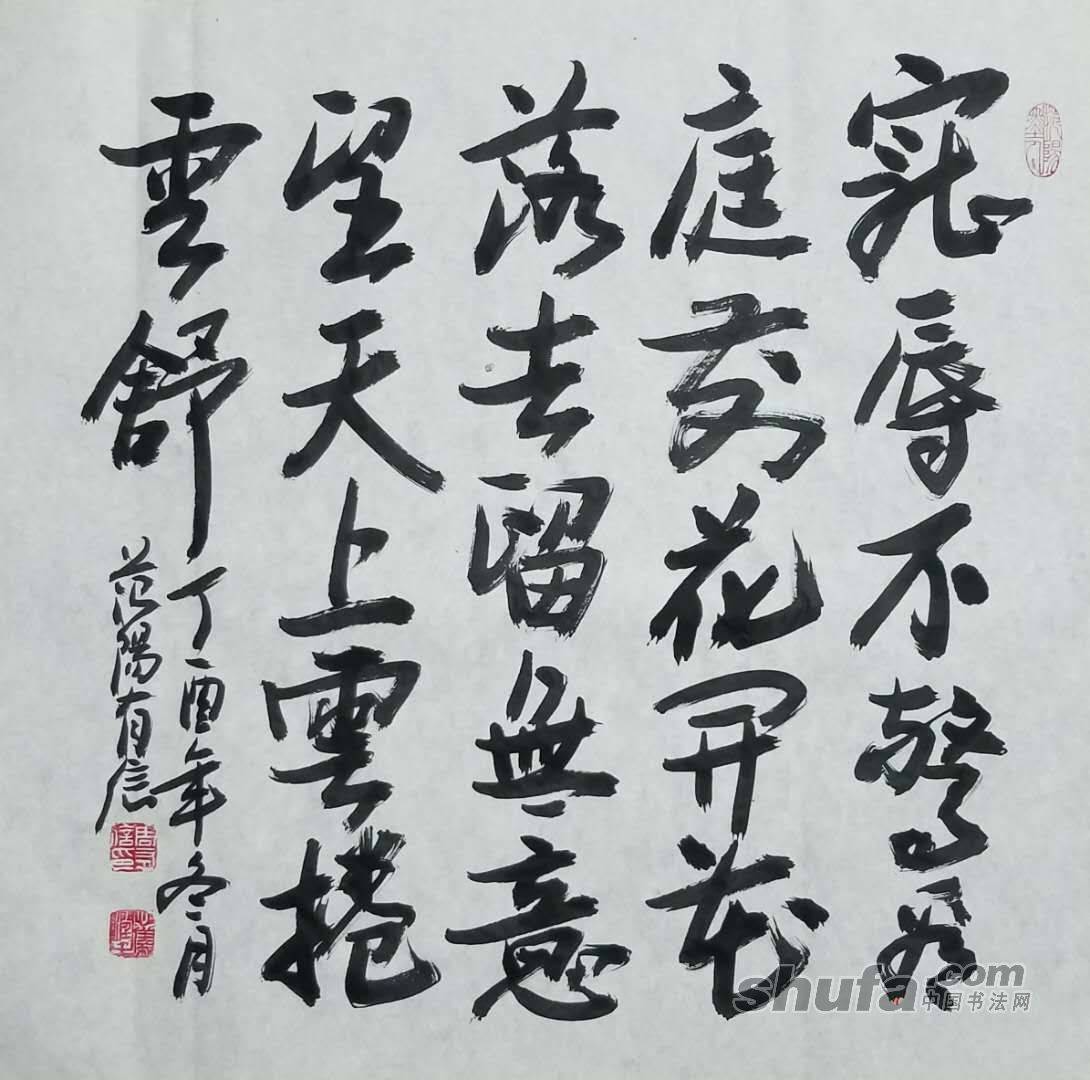 寵辱不驚看
庭前花開花
落去留無意
望天上雲捲
雲舒
丁酉年冬月
范陽有信
shufa.com
中国书法网